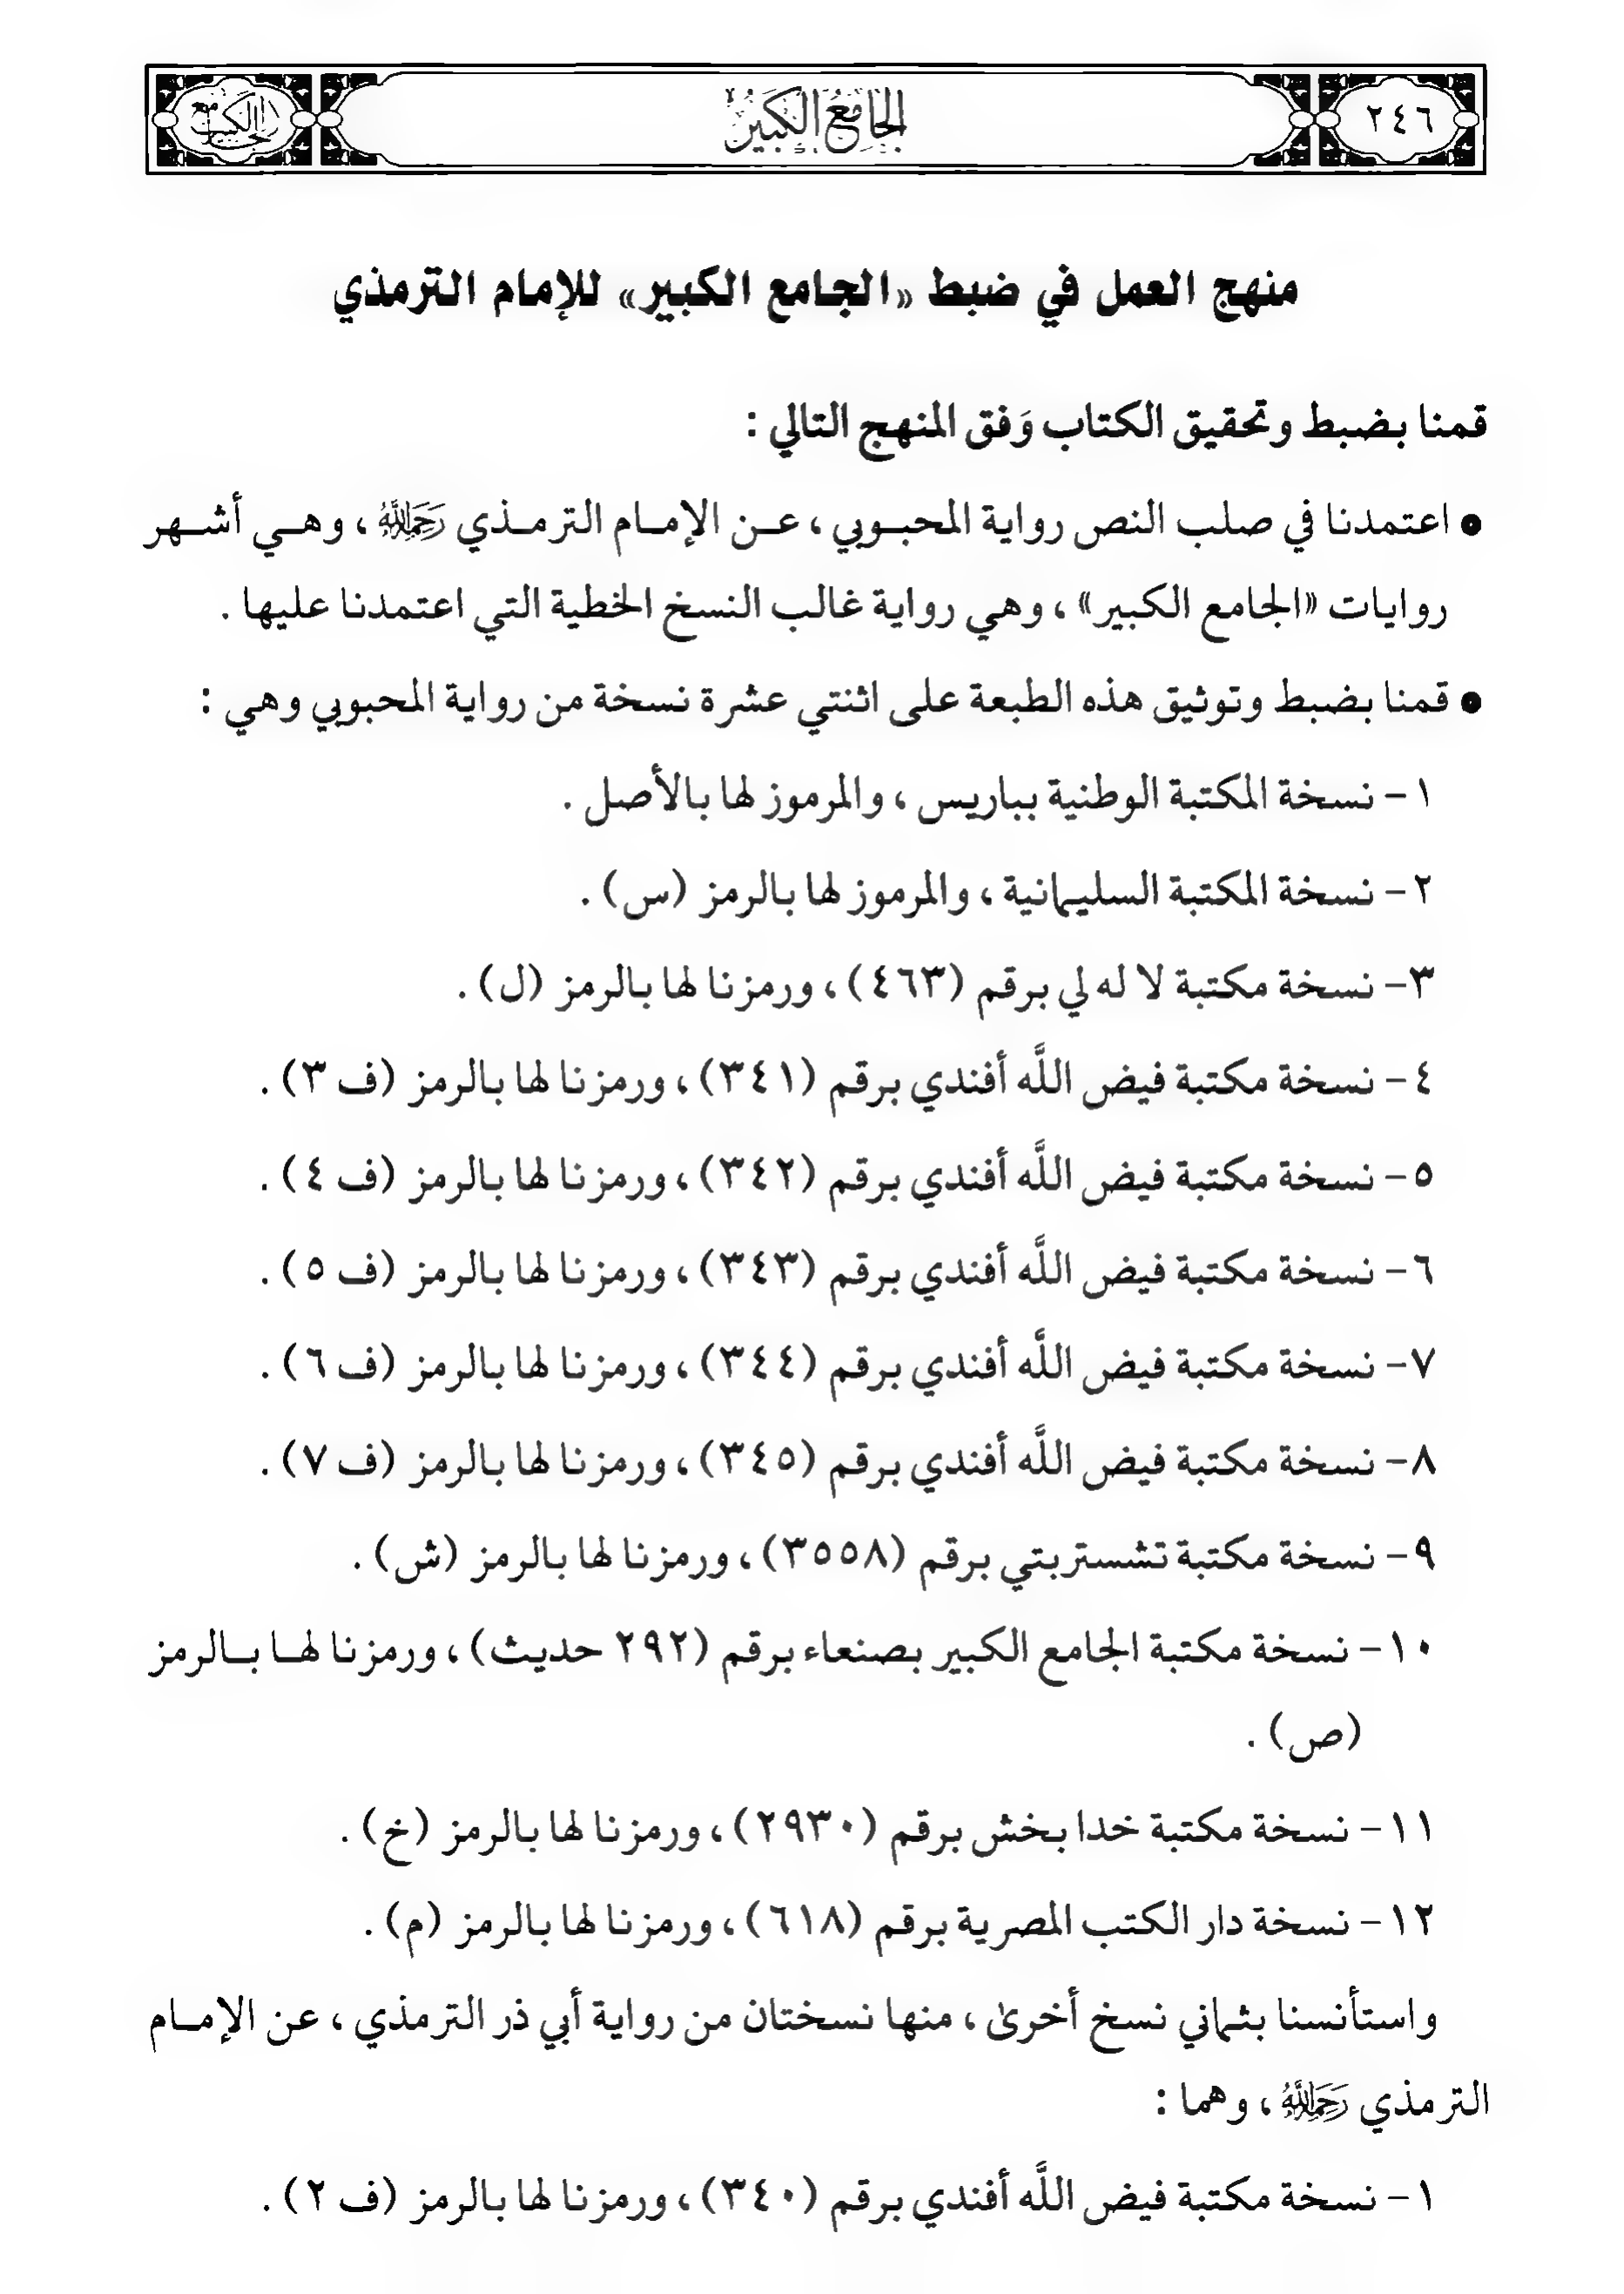 ٢٤٦
الجامع الكبير
الجامع الكبير
منهج العمل في ضبط «الجامع الكبير» للإمام الترمذي
قمنا بضبط وتحقيق الكتاب وَفق المنهج التالي :
• اعتمدنا في صلب النص رواية المحبوبي ، عن الإمام الترمذي رَحِمَهُ ٱللَّهُ ، وهي أشهر
روايات «الجامع الكبير» ، وهي رواية غالب النسخ الخطية التي اعتمدنا عليها .
• قمنا بضبط وتوثيق هذه الطبعة على اثنتي عشرة نسخة من رواية المحبوبي وهي :
١- نسخة المكتبة الوطنية بباريس ، والمرموز لها بالأصل .
٢- نسخة المكتبة السليمانية ، والمرموز لها بالرمز (س) .
٣- نسخة مكتبة لا له لي برقم (٤٦٣) ، ورمزنا لها بالرمز (ل) .
٤- نسخة مكتبة فيض اللَّه أفندي برقم (٣٤١) ، ورمزنا لها بالرمز (ف ٣) .
٥- نسخة مكتبة فيض اللَّه أفندي برقم (٣٤٢) ، ورمزنا لها بالرمز (ف ٤) .
٦- نسخة مكتبة فيض اللَّه أفندي برقم (٣٤٣) ، ورمزنا لها بالرمز (ف ٥) .
٧- نسخة مكتبة فيض اللَّه أفندي برقم (٣٤٤) ، ورمزنا لها بالرمز (ف ٦) .
٨- نسخة مكتبة فيض اللَّه أفندي برقم (٣٤٥) ، ورمزنا لها بالرمز (ف ٧) .
٩- نسخة مكتبة تشستربتي برقم (٣٥٥٨) ، ورمزنا لها بالرمز (ش) .
١٠- نسخة مكتبة الجامع الكبير بصنعاء برقم (٢٩٢ حديث) ، ورمزنا لها بالرمز
(ص) .
١١- نسخة مكتبة خدا بخش برقم (٢٩٣٠) ، ورمزنا لها بالرمز (خ) .
١٢- نسخة دار الكتب المصرية برقم (٦١٨) ، ورمزنا لها بالرمز (م) .
واستأنسنا بثماني نسخ أخرىٰ ، منها نسختان من رواية أبي ذر الترمذي ، عن الإمام
الترمذي رَحِمَهُ ٱللَّهُ ، وهما :
١- نسخة مكتبة فيض اللَّه أفندي برقم (٣٤٠) ، ورمزنا لها بالرمز (ف ٢) .